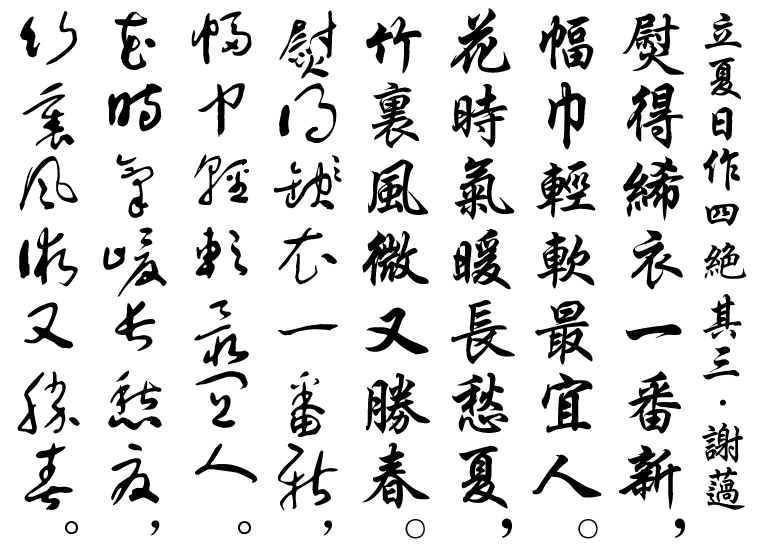 立夏日作四絶 其三·謝薖
熨得絺衣一番新，
幅巾輕軟最宜人○
花時氣暖長愁夏，
竹裏風微又勝春○
熨得絺衣一番新，
幅巾輕軟最宜人。
花時氣暖長愁夏，
竹裏風微又勝春。